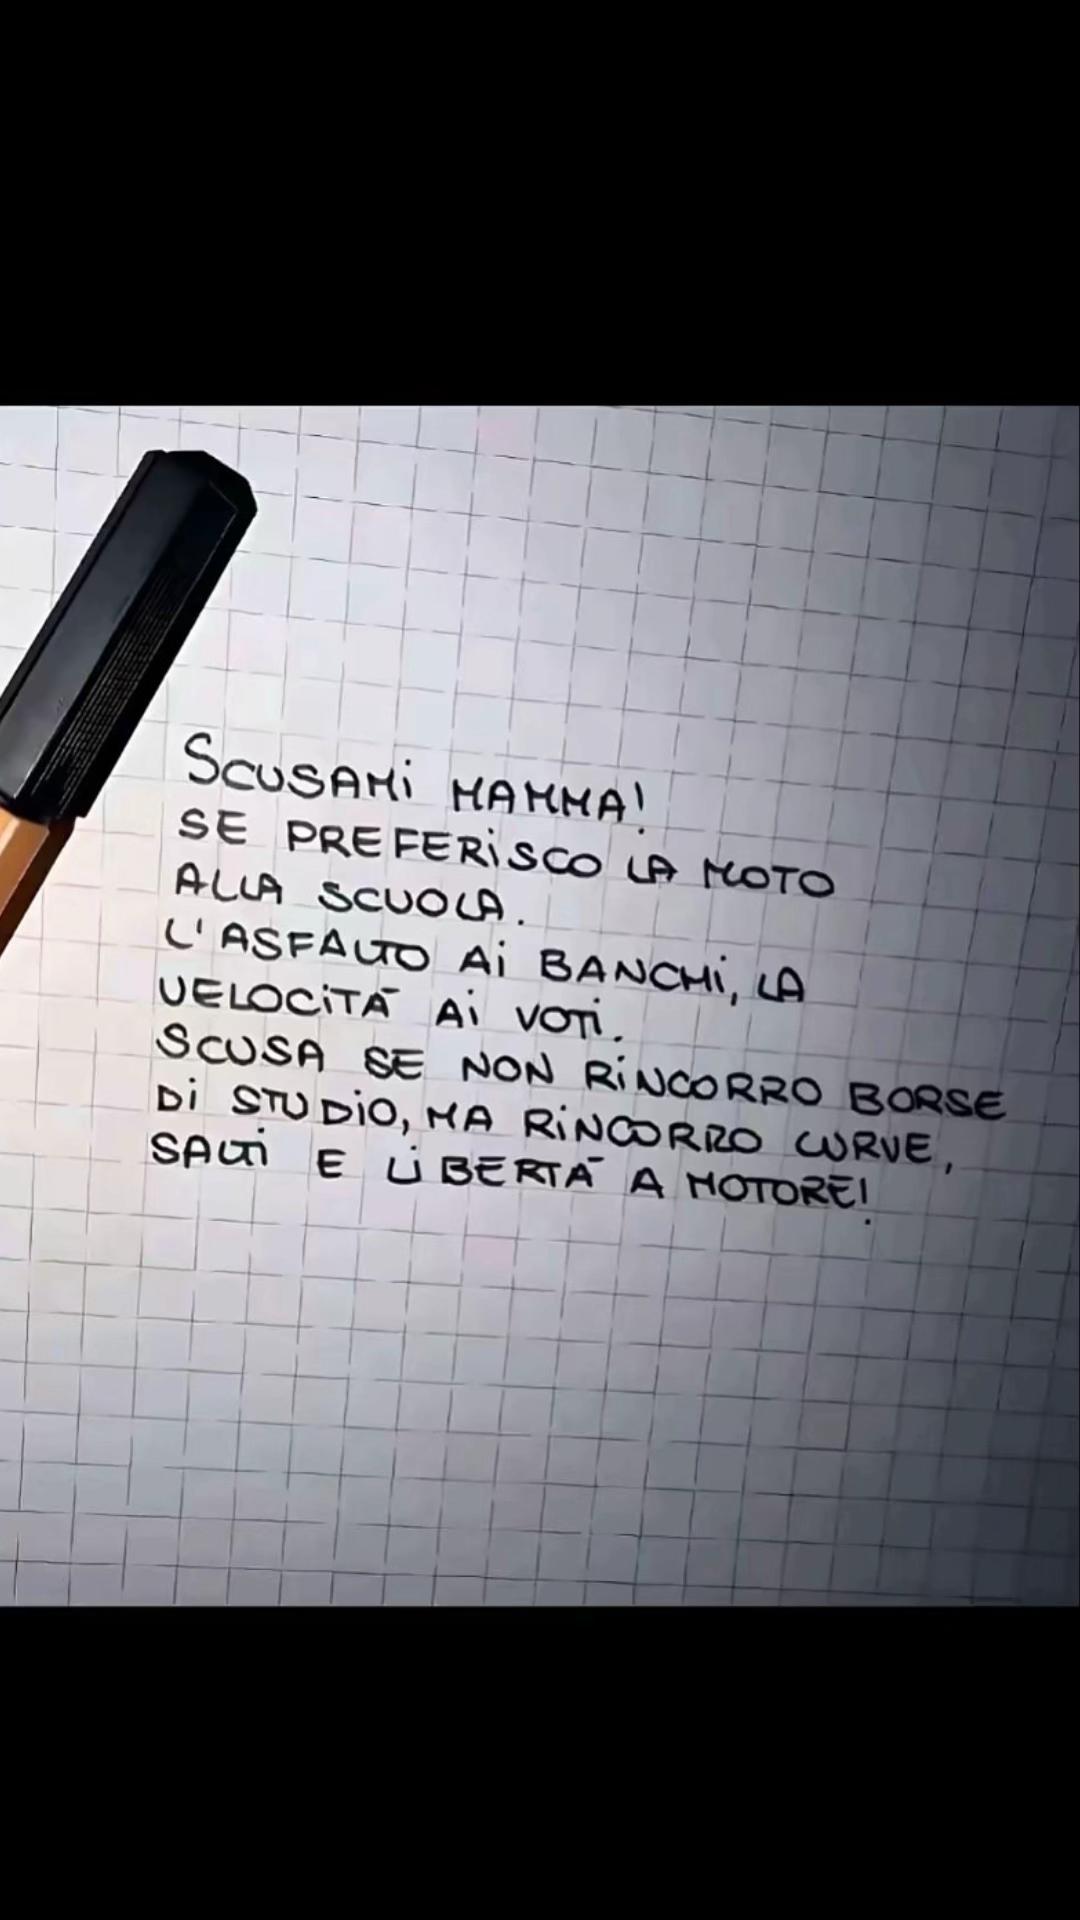 SCUSAMi MAMMA!
SE PREFERiSCO LA MOTO
ALLA SCUOLA.
L'ASFALTO Ai BANCHi, LA
VELOCiTÀ Ai VOTi.
SCUSA SE NON RiNCORRO BORSE
Di STUDiO, MA RiNCORRO CURVE,
SALTi E LiBERTÀ A MOTORE!